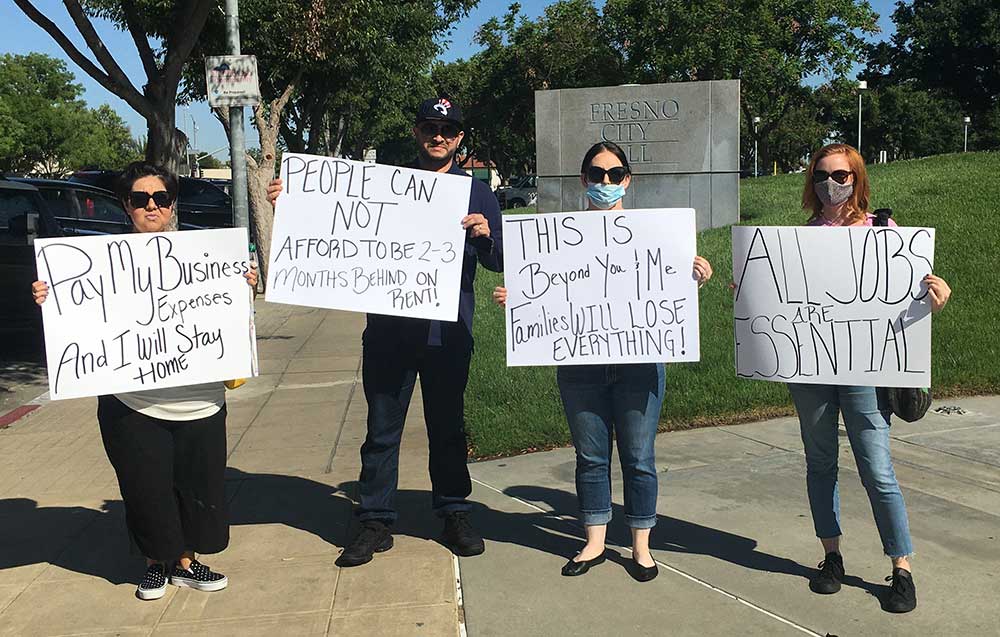 Pay My Business
Expenses
And I Will Stay
Home
PEOPLE CAN
NOT
AFFORD TO BE 2-3
MONTHS BEHIND ON
RENT!
FRESNO
CITY
THIS IS
Beyond You & Me
Families WILL LOSE
EVERYTHING!
ALL JOBS
ARE
ESSENTIAL